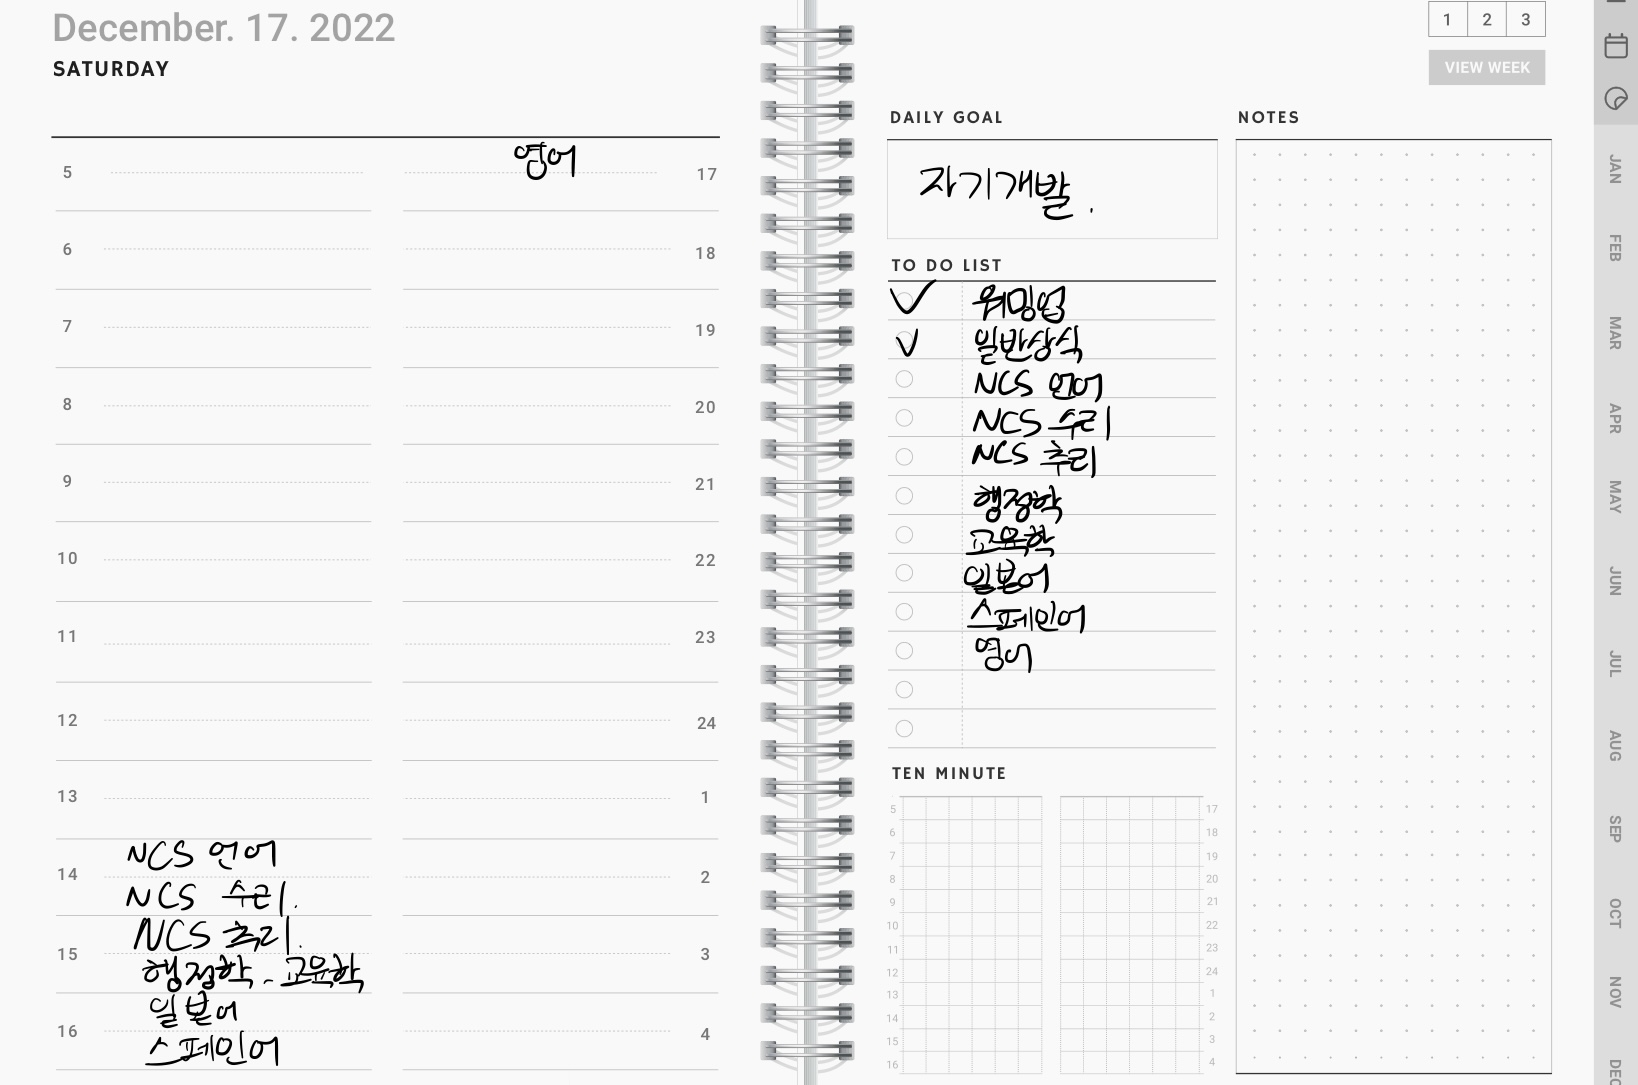 December. 17. 2022
SATURDAY
5
6
7
8
9
10
11
12
13
14
NCS 언어
NCS 수리.
15
NCS 추리.
행정학 - 교육학
16
일본어
스페인어
영어
17
18
19
20
21
22
23
24
1
2
3
4
1 2 3
VIEW WEEK
DAILY GOAL
자기개발.
TO DO LIST
워밍업
일반상식
NCS 언어
NCS 수리
NCS 추리
행정학
교육학
일본어
스페인어
영어
TEN MINUTE
5 17
6 18
7 19
8 20
9 21
10 22
11 23
12 24
13 1
14 2
15 3
16 4
NOTES
JAN
FEB
MAR
APR
MAY
JUN
JUL
AUG
SEP
OCT
NOV
DEC